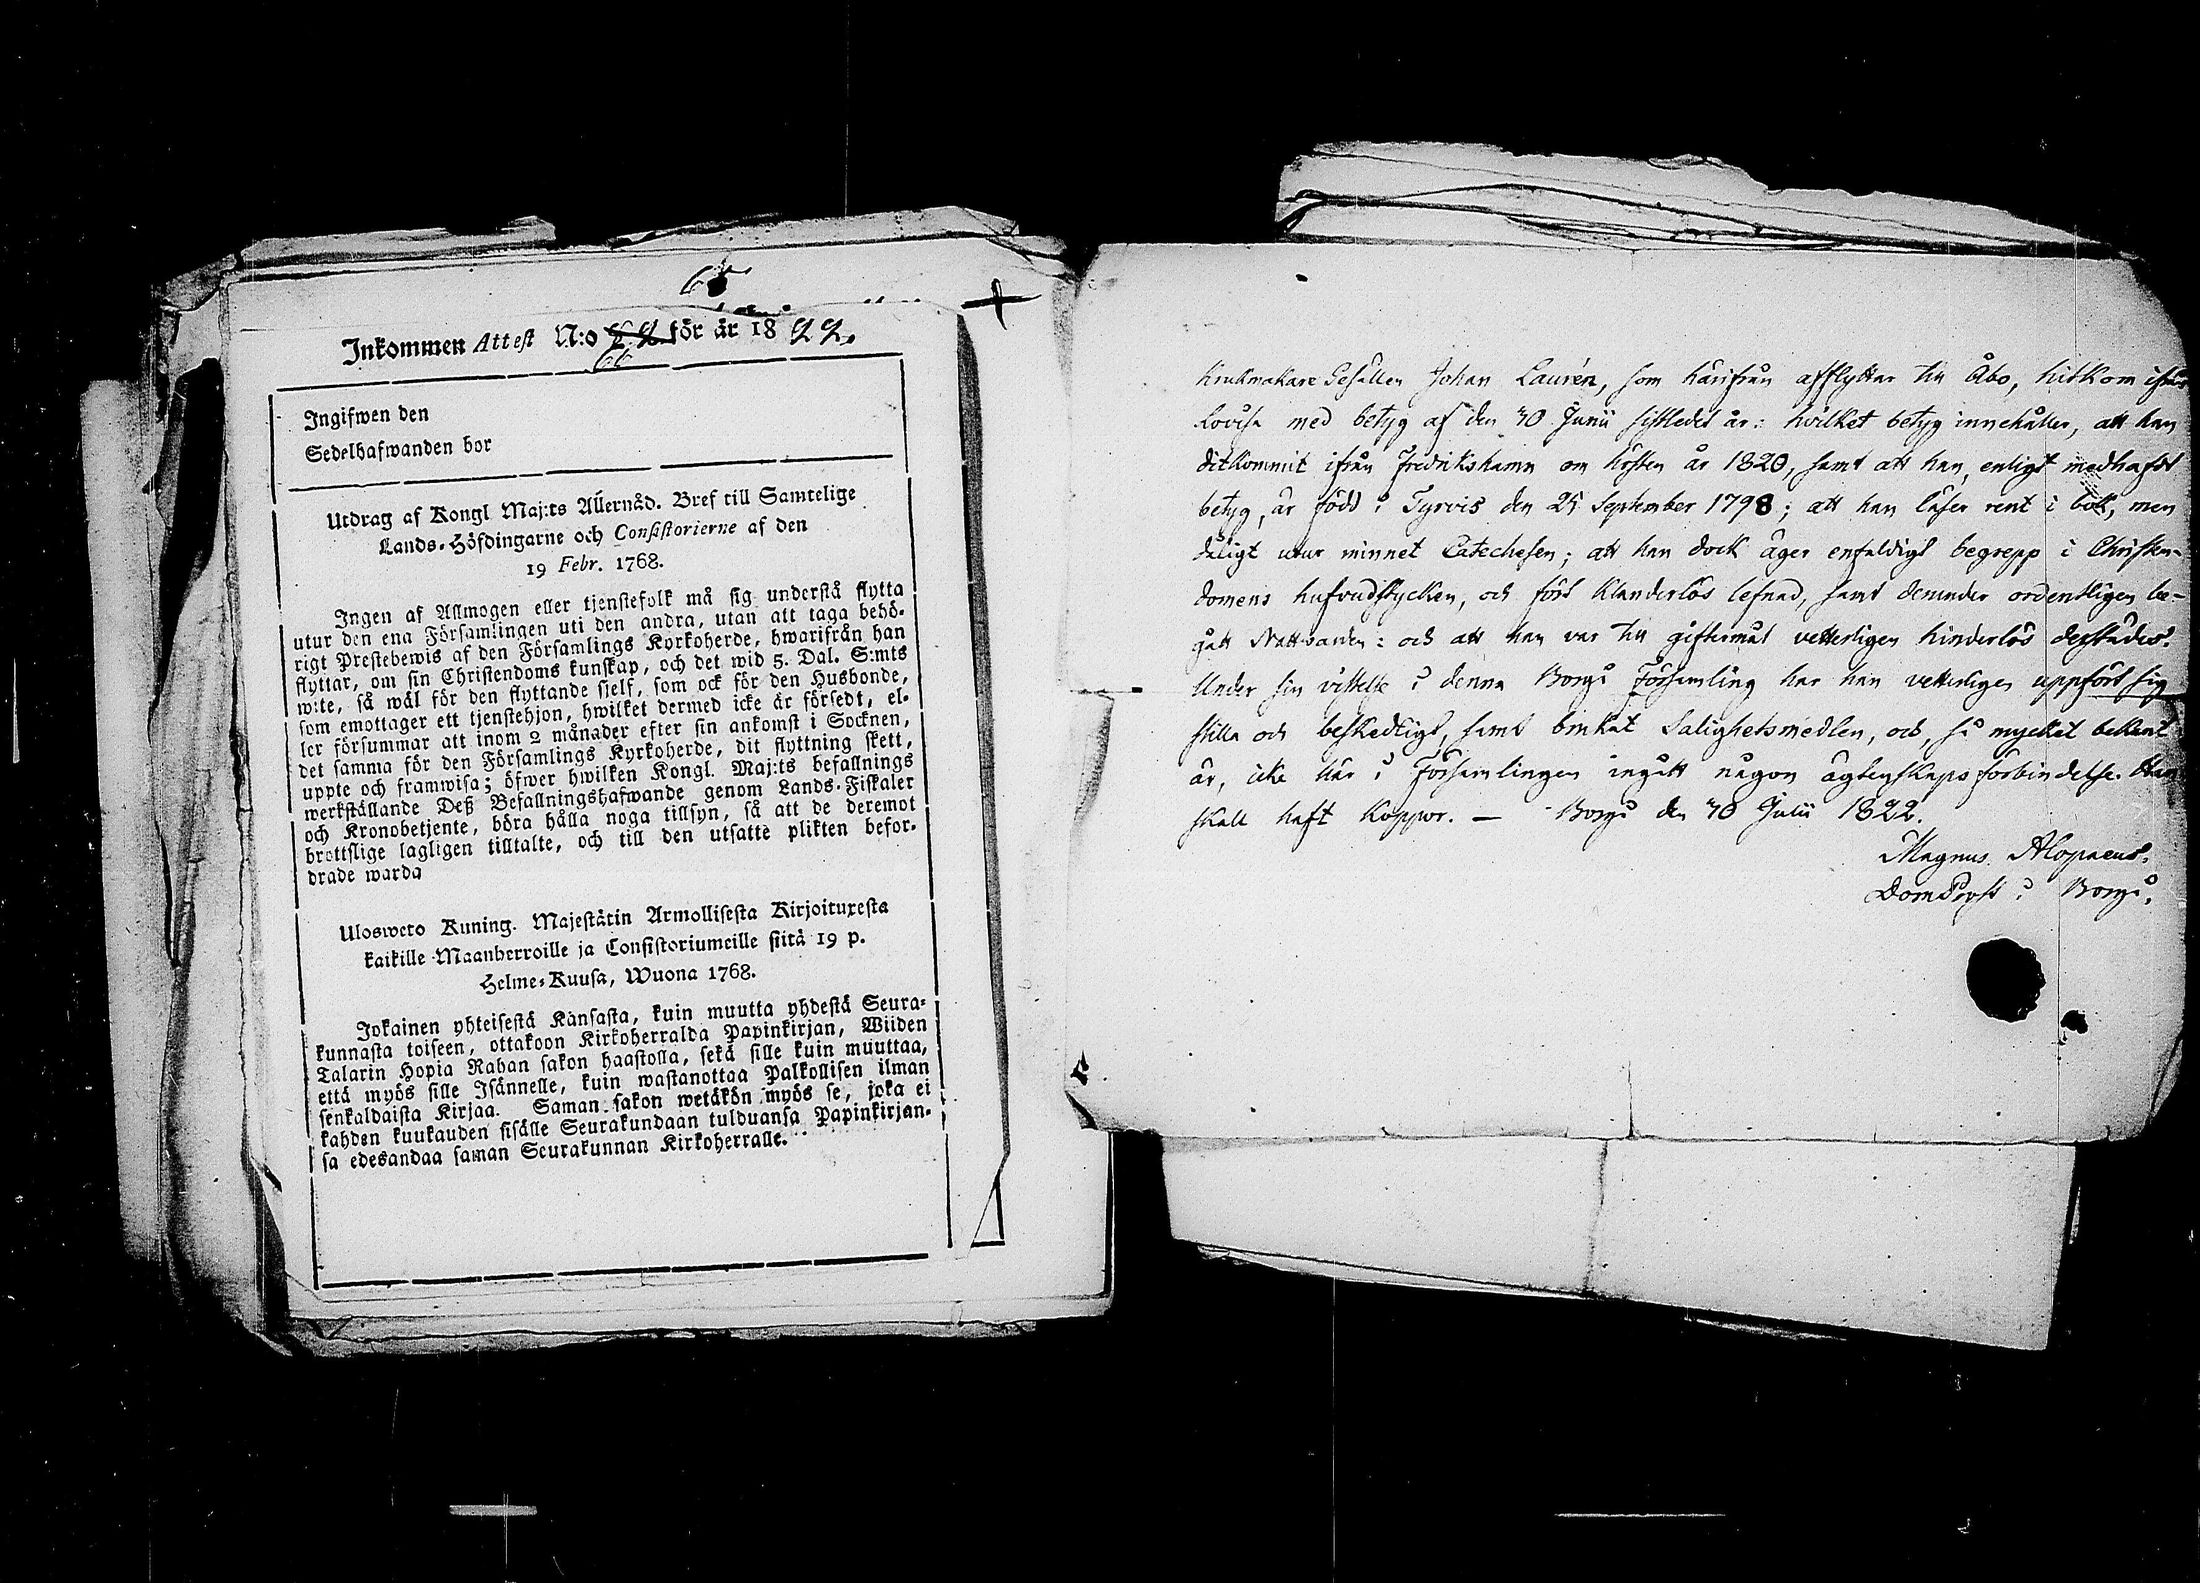 65
Inkommen Attest N:o 66 för år 1822.
Ingifwen den
Sedelhafwanden bor
Utdrag af Kongl Maj:ts Allernåd. Bref till Samtelige
Lands-Höfdingarne och Consistorierne af den
19 Febr. 1768.
Ingen af Allmogen eller tjenstefolk må sig understå flytta
utur den ena Församlingen uti den andra, utan att taga behö-
rigt Prestebewis af den Församlings Kyrkoherde, hwarifrån han
flyttar, om sin Christendoms kunskap, och det wid 5. Dal. S:mts
wite, så wäl för den flyttande sjelf, som ock för den Husbonde,
som emottager ett tjenstehjon, hwilket dermed icke är försedt, el-
ler försummar att inom 2 månader efter sin ankomst i Socknen,
det samma för den Församlings Kyrkoherde, dit flyttning skett,
uppte och framwisa; öfwer hwilken Kongl. Maj:ts befallnings
werkställande Deß Befallningshafwande genom Lands-Fiskaler
och Kronobetjente, böra hålla noga tillsyn, så att de deremot
brottslige lagligen tilltalte, och till den utsatte plikten befor-
drade warda
Ulosweto Kuning. Majestätin Armollisesta Kirjoituxesta
kaikille Maanherroille ja Consistoriumeille siitä 19 p.
Helme-Kuusa, Wuona 1768.
Jokainen yhteisestä Kansasta, kuin muutta yhdestä Seura-
kunnasta toiseen, ottakoon Kirkoherralda Papinkirjan, Wiiden
Talarin Hopia Rahan sakon haastolla, sekä sille kuin muuttaa,
että myös sille Isännelle, kuin wastanottaa Palkollisen ilman
senkaldaista Kirjaa. Saman sakon wetäkön myös se, joka ei
kahden kuukauden sisälle Seurakundaan tulduansa Papinkirjan-
sa edesandaa saman Seurakunnan Kirkoherralle.
Krukmakare Gesällen Johan Laurén, som härifrån afflyttar till Åbo, hitkom ifrån
Lovisa med betyg af den 30 Junii sistledit år: hvilket betyg innehåller, att han
ditkommit ifrån Fredrikshamn om hösten år 1820, samt att han, enligt medhafdt
betyg, är född i Tyrvis den 25 September 1798; att han läser rent i bok, men
dåligt utur minnet Catechesen; att han dock äger enfaldigt begrepp i Christen-
domens hufvudstycken, och fört klanderlös lefnad, samt derunder ordentligen be-
gått Nattvarden: och att han var till giftermål vetterligen hinderlös derstädes.
Under sin vistelse i denna Borgå Församling har han vetterligen uppfört sig
stilla och beskedligt, samt brukat Salighetsmedlen, och, så mycket bekant
är, icke här i Församlingen ingått någon ägtenskapsförbindelse. Han
skall haft koppor. — Borgå den 30 Julii 1822.
Magnus Alopaeus.
DomProst i Borgå.